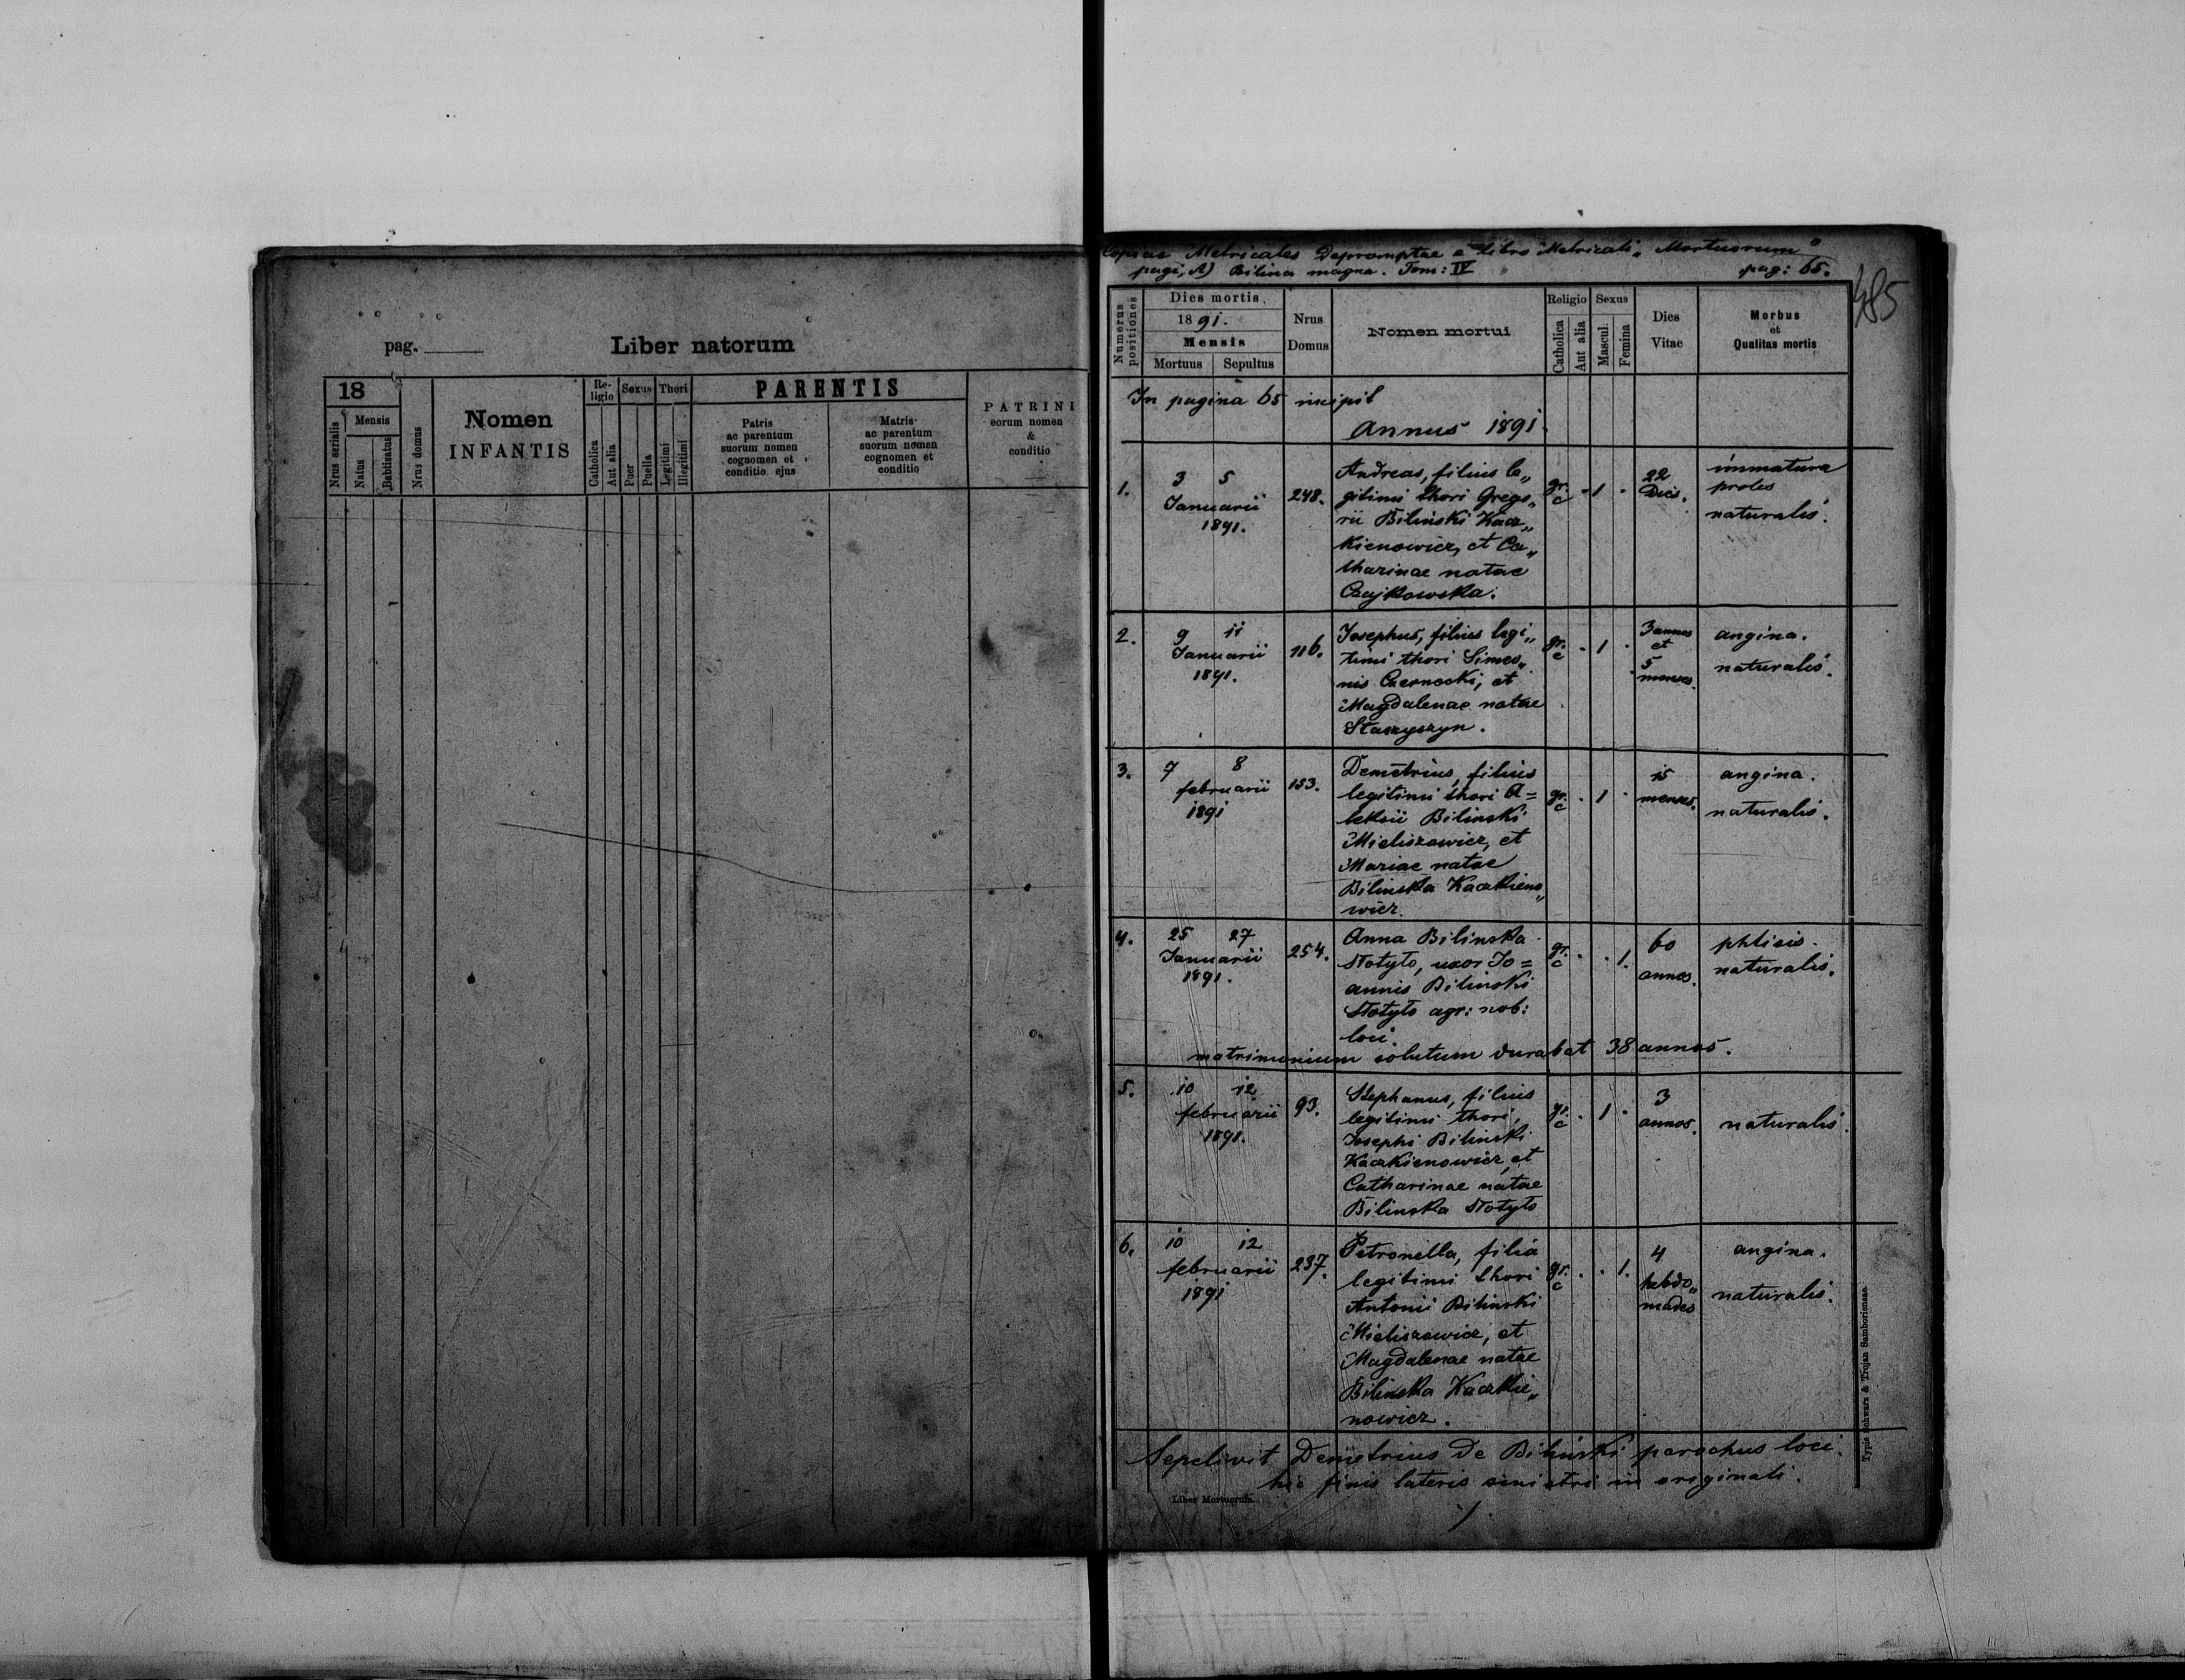 pag.
Liber natorum
18
Mensis
Nrus serialis
Natus
Babtisatus
Nrus domus
Nomen
INFANTIS
Re-
ligio
Catholica
Aut alia
Sexus
Puer
Puella
Thori
Legitimi
Illegitimi
PARENTIS
Patris
ac parentum
suorum nomen
cognomen et
conditio ejus
Matris
ac parentum
suorum nomen
cognomen et
conditio
PATRINI
eorum nomen
&
conditio
Copiae Metricales Depromptae e libro Metricali "Mortuorum"
pagi, A) Bilina magna. Tom: IV pag: 65.
485
Numerus
positiones
Dies mortis
1891.
Mensis
Mortuus Sepultus
Nrus
Domus
Nomen mortui
Religio
Catholica
Aut alia
Sexus
Mascul.
Femina
Dies
Vitae
Morbus
et
Qualitas mortis
In pagina 65 incipit
Annus 1891.
1.
3 5
Januarii
1891.
248.
Andreas, filius le„
gitimi thori Grego„
rii Biliński Kacz„
kienowicz, et Ca„
tharinae natae
Czajkowska.
gr.
c
1
22
Dies.
immatura
proles
naturalis.
2.
9 11
Januarii
1891.
116.
Josephus, filius legi„
timi thori Simeo„
nis Czernecki, et
Magdalenae natae
Staszyszyn.
gr.
c
1
3 annos
et
5
menses.
angina.
naturalis.
3.
7 8
februarii
1891
153.
Demetrius, filius
legitimi thori A=
leksii Bilinski
Mieliszowicz, et
Mariae natae
Bilinska Kaczkieno„
wicz.
gr.
c
1
15
menses.
angina.
naturalis.
4.
25 27
Januarii
1891.
254.
Anna Bilinska
Stotyto, uxor Jo=
annis Bilinski
Stotyto agr: nob:
loci.
gr.
c
1.
60
annos.
phtisis.
naturalis.
matrimonium solutum durabat 38 annos.
5.
10 12
februarii
1891.
93.
Stephanus, filius
legitimi thori,
Josephi Bilinski
Kaczkienowicz et
Catharinae natae
Bilinska Stotyto
gr.
c
1
3
annos.
naturalis.
6.
10 12
februarii
1891
237.
Petronella, filia
legitimi thori
Antonii Bilinski
Mieliszowicz, et
Magdalenae natae
Bilinska Kaczkie„
nowicz.
gr.
c
1.
4
hebdo„
mades
angina.
naturalis.
Sepelivit Demetrius de Biliński parochus loci.
hic finis lateris sinistri in originali.
Liber Mortuorum.
Typis Schwarz & Trojan Samboriensse.